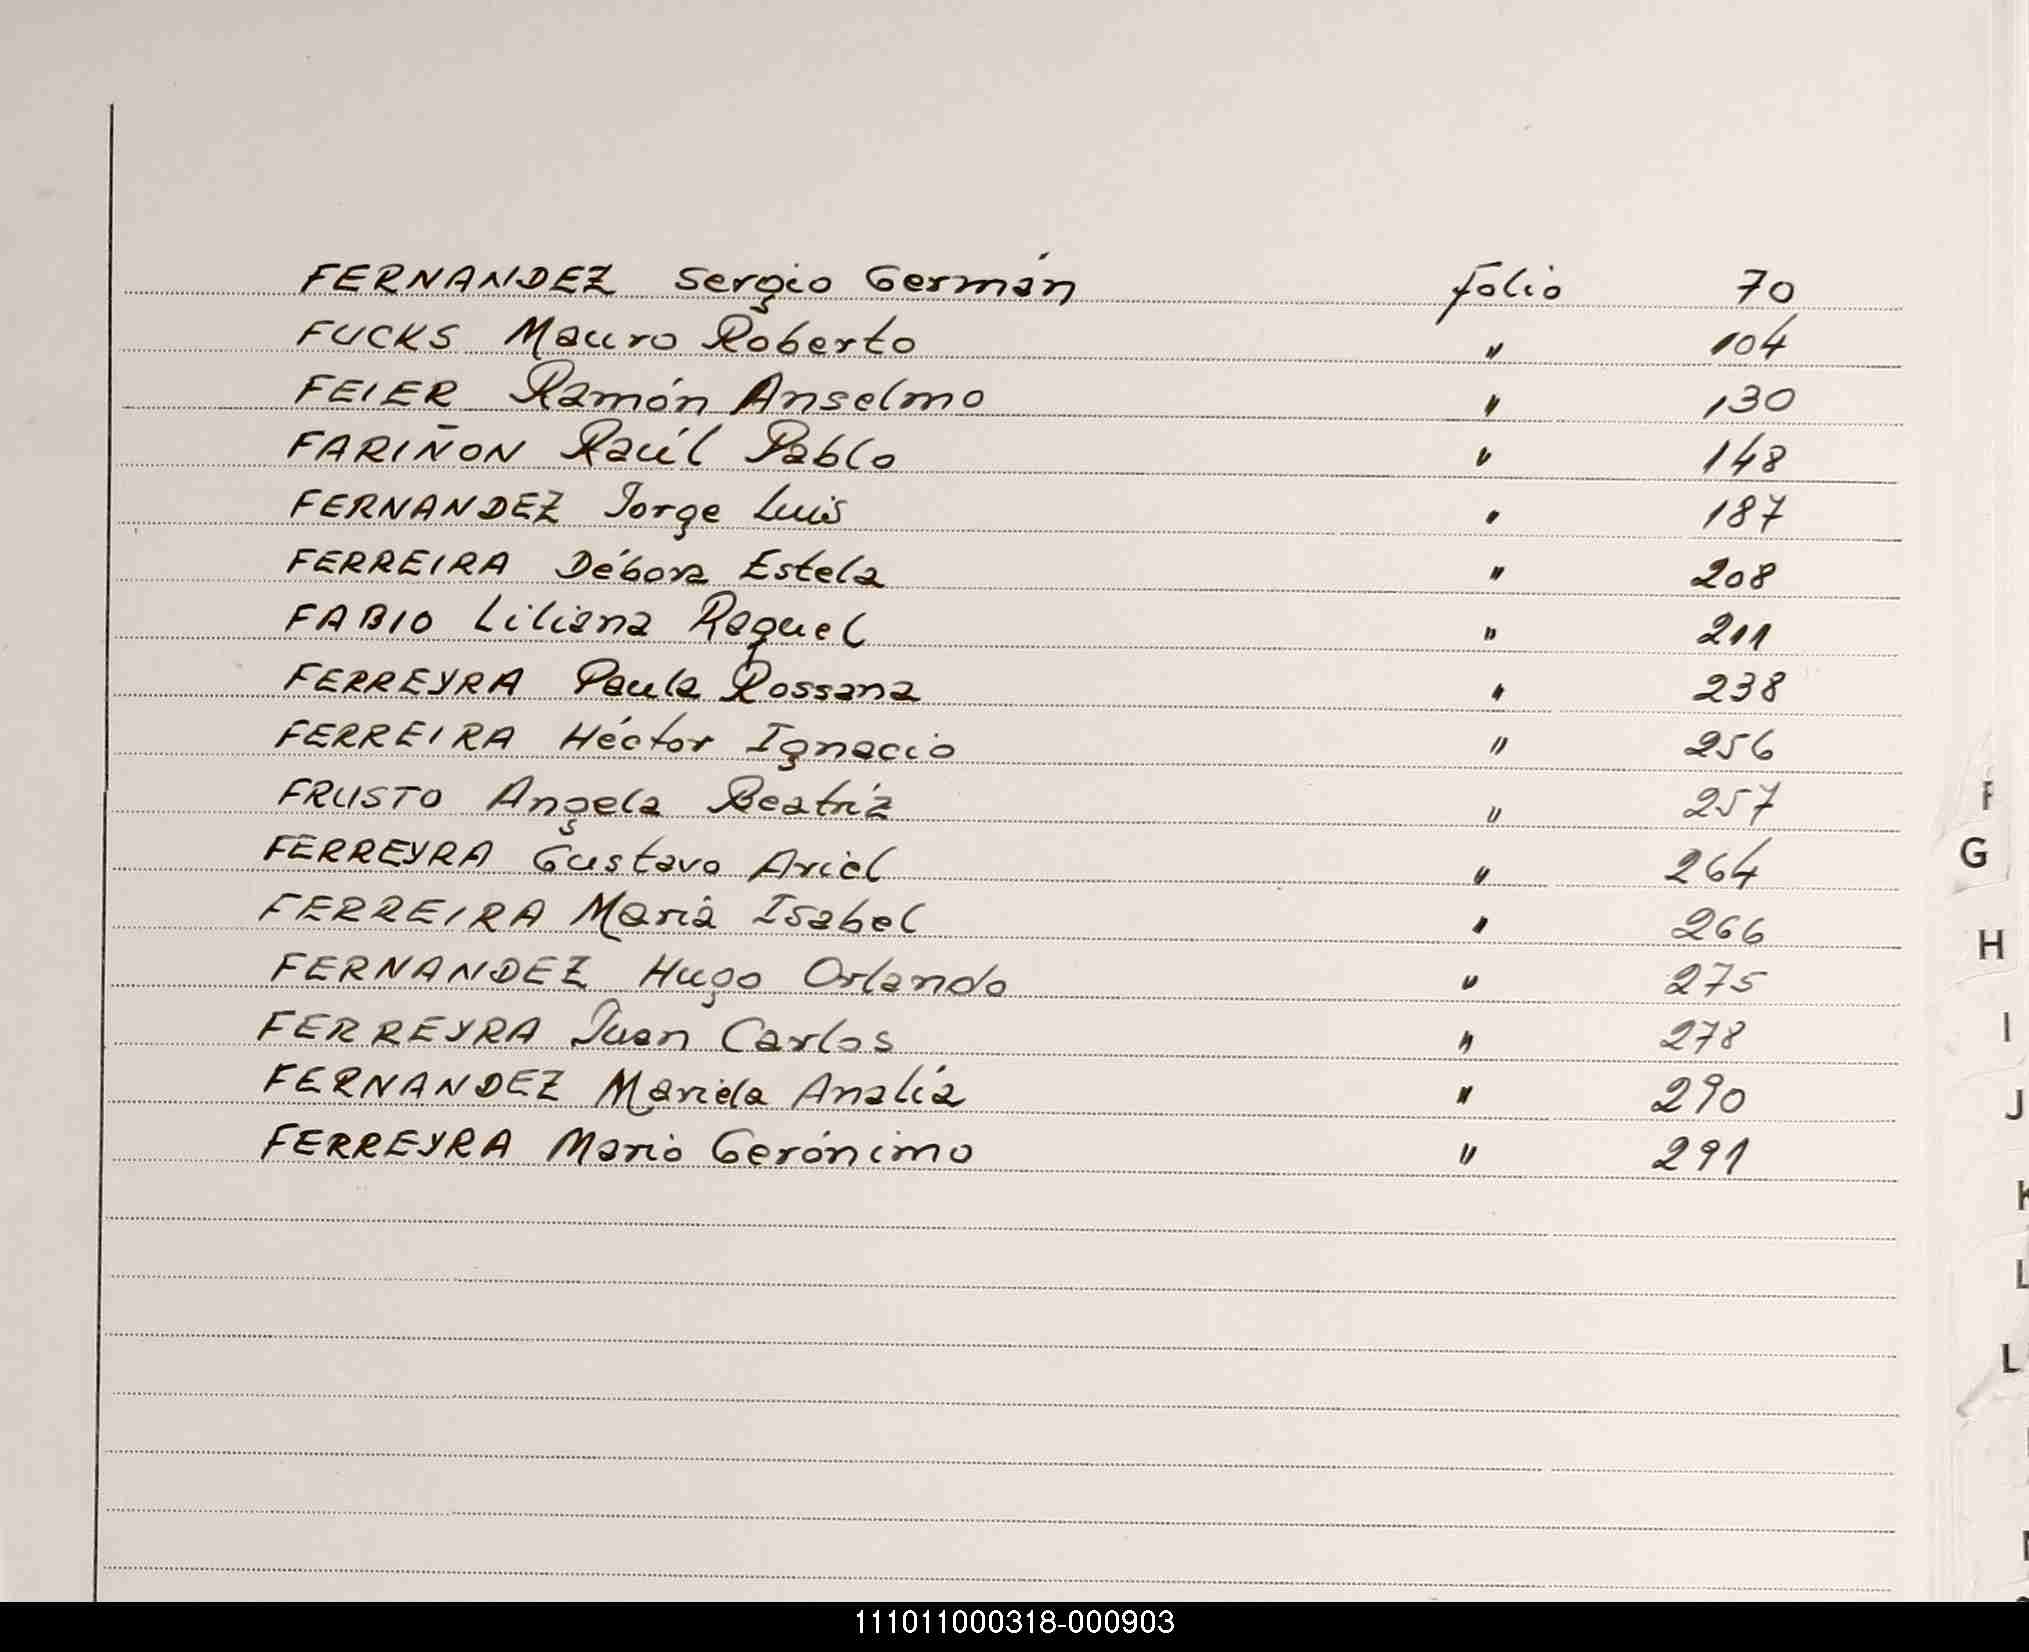 FERNANDEZ Sergio Germán folio 70
FUCKS Mauro Roberto " 104
FEIER Ramón Anselmo " 130
FARIÑON Raúl Pablo " 148
FERNANDEZ Jorge Luis " 187
FERREIRA Débora Estela " 208
FABIO Liliana Raquel " 211
FERREYRA Paula Rossana " 238
FERREIRA Héctor Ignacio " 256
FRUSTO Angela Beatriz " 257
FERREYRA Gustavo Ariel " 264
FERREIRA María Isabel " 266
FERNANDEZ Hugo Orlando " 275
FERREYRA Juan Carlos " 278
FERNANDEZ Mariela Analía " 290
FERREYRA Mario Gerónimo " 291
F
G
H
I
J
K
L
111011000318-000903